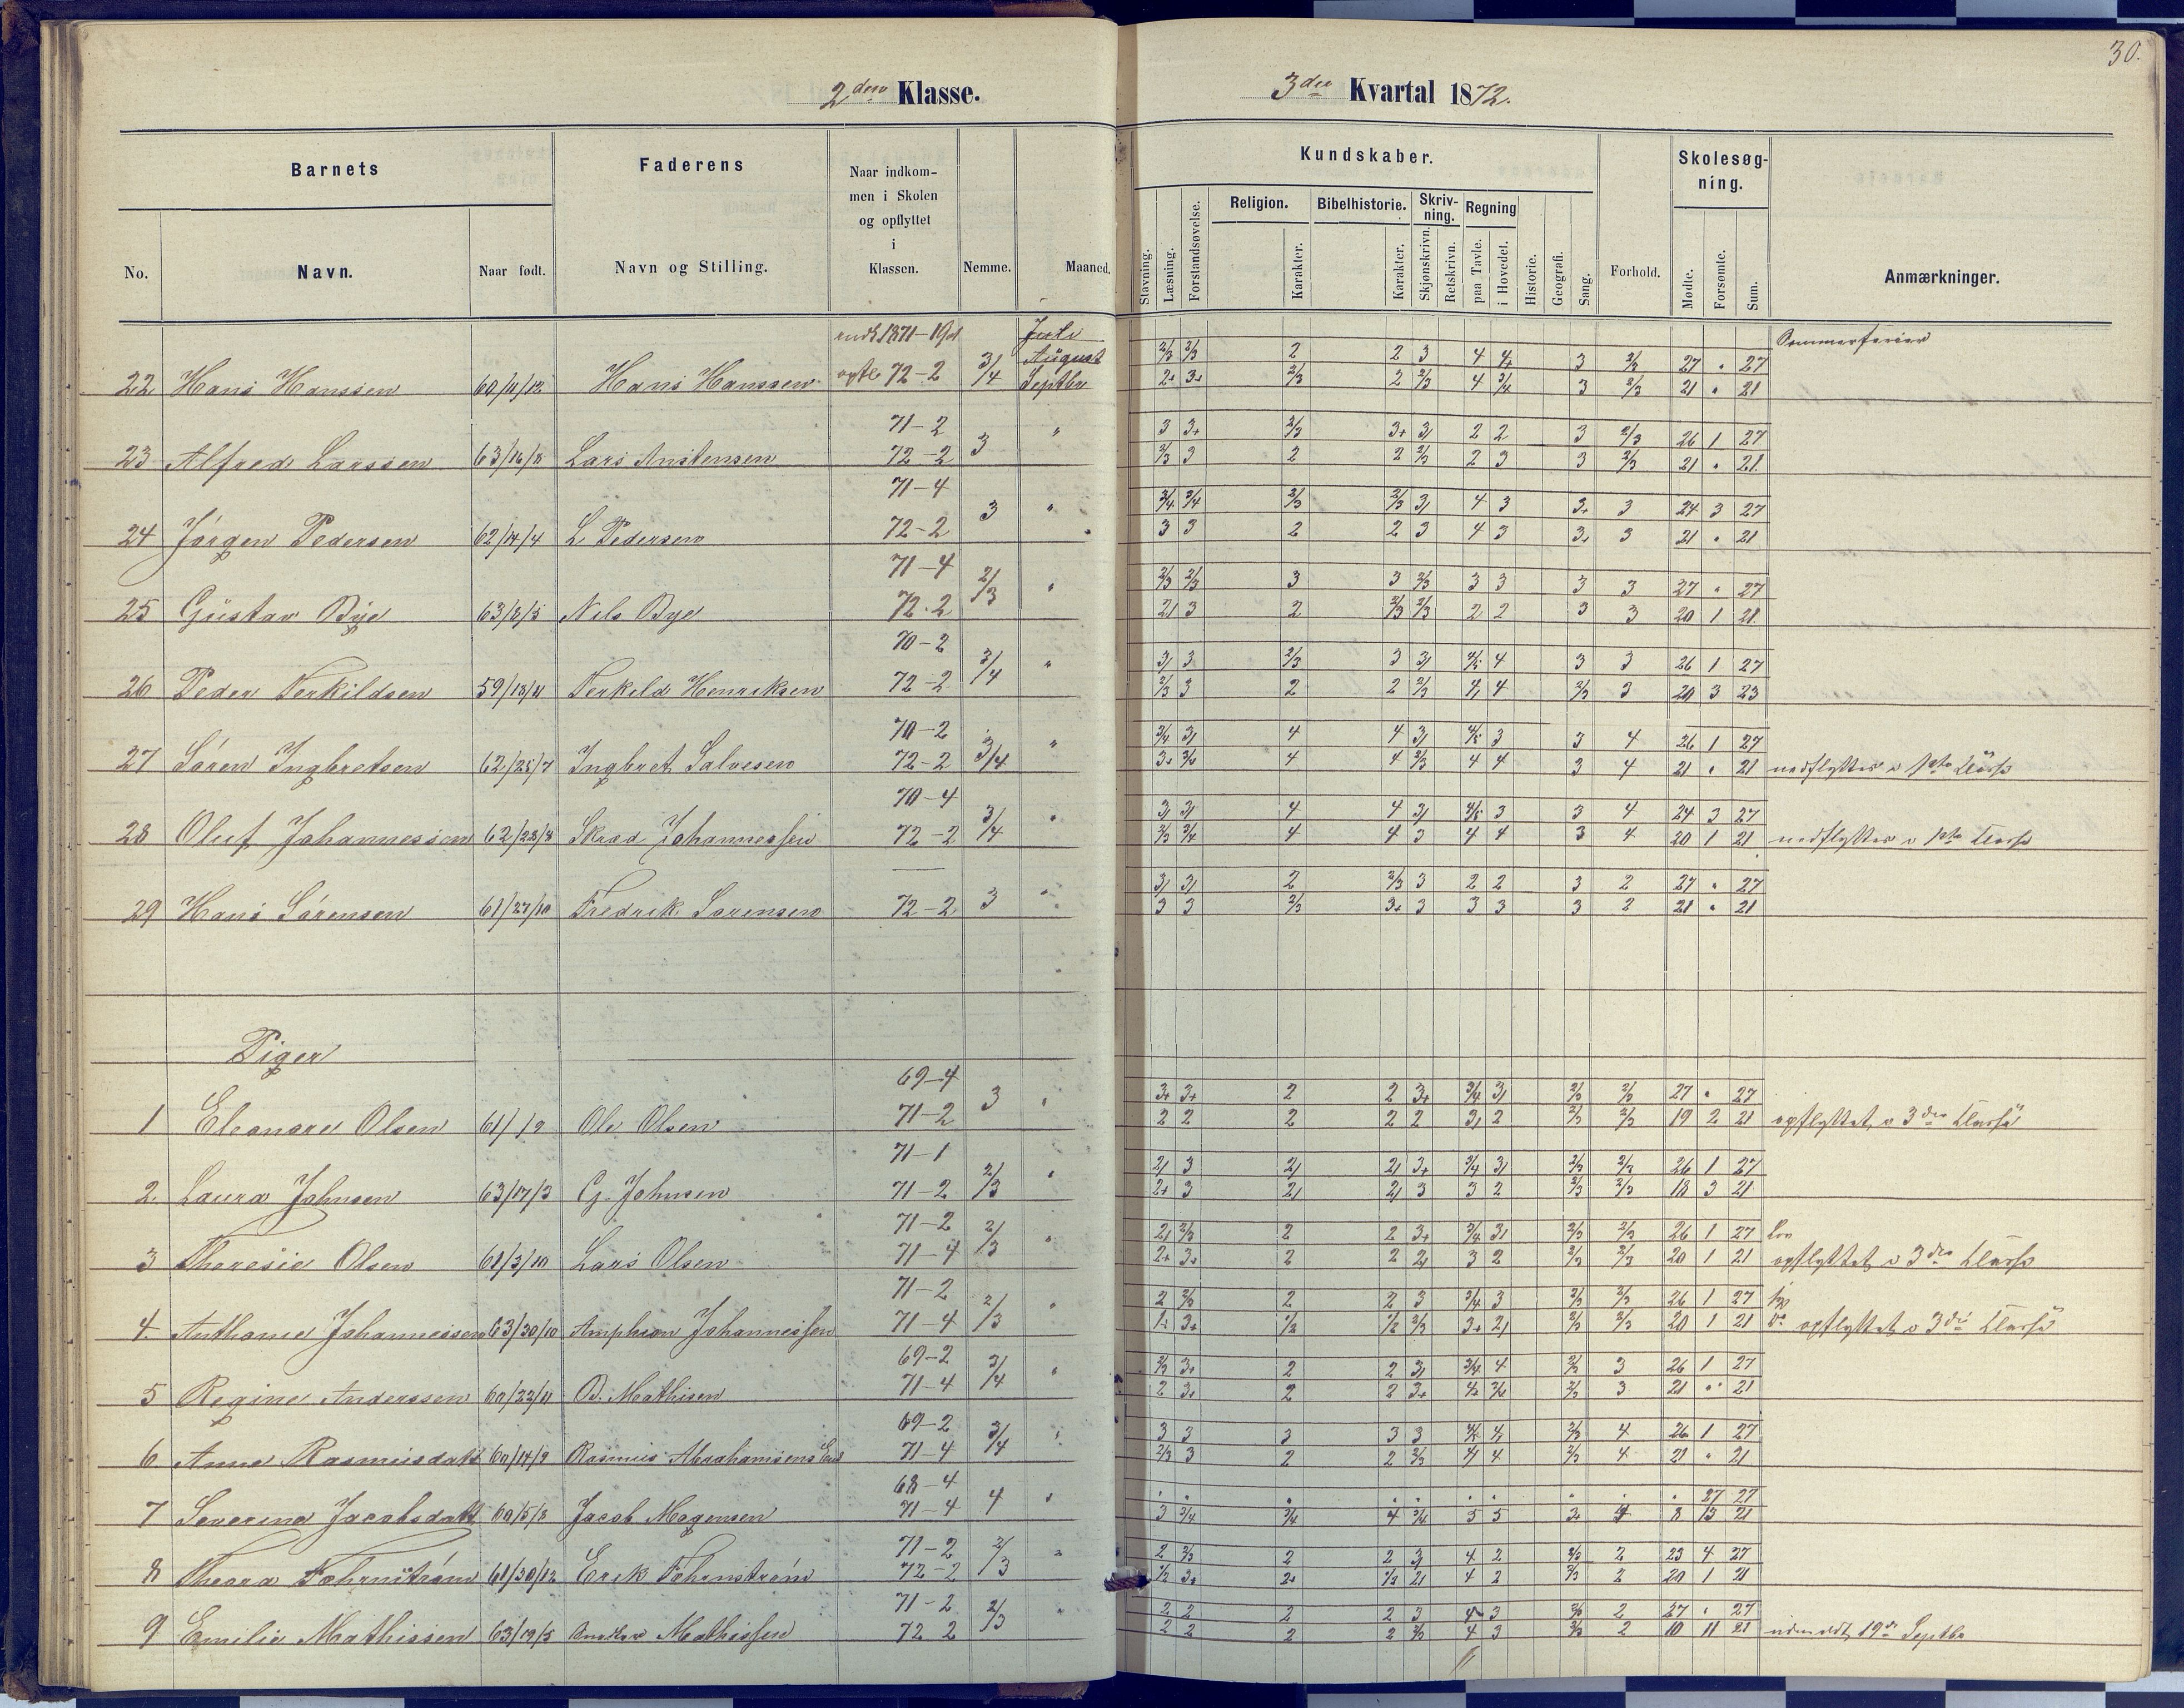 30.
2den Klasse.
3die Kvartal 1872.
Barnets
Faderens
Naar indkom-
men i Skolen
og opflyttet
i
Klassen.
Nemme.
Maaned.
No.
Navn.
Naar født.
Navn og Stilling.
Kundskaber.
Skolesøg-
ning.
Religion.
Bibelhistorie.
Skriv-
ning.
Regning
Stavning.
Læsning.
Forstandsøvelse.
Karakter.
Karakter.
Skjønskrivn.
Retskrivn.
paa Tavle.
i Hovedet.
Historie.
Geografi.
Sang.
Forhold.
Mødte.
Forsømte.
Sum.
Anmærkninger.
Juli Sommerferier
August 2/3 2/3 2 2 3 4 4+ 3 2/3 27 " 27
22 Hans Hanssen 60/11/12 Hans Hanssen 72-2 3/4 Septbr 2+ 3+ 2/3 2 2/3 4 3/4 3 2/3 21 " 21
71-2 " 3 3+ 2/3 3+ 3/ 2 2 3 2/3 26 1 27
23 Alfred Larssen 63/16/8 Lars Anstensen 72-2 3 2/3 3 2 2 2/3 2 3 3 2/3 21 " 21
71-4 " 3/4 3/4 2/3 2/3 3/ 4 3 3+ 3 24 3 27
24 Jørgen Pedersen 62/14/4 L. Pedersen 72-2 3 3 3 2 2 3 4 3 3+ 3 21 " 21
71-4 " 2/3 2/3 3 3 2/3 3 3 3 3 27 " 27
25 Gustav Bye 63/8/5 Nils Bye 72-2 2/3 2/ 3 2 2/3 2/3 2 2 3 3 20 1 21
70-2 " 3/ 3 2/3 3 3/ 4/5 4 3 3 26 1 27
26 Peder Terkildsen 59/13/11 Terkild Henriksen 72-2 3/4 2/3 3 2 2 2/3 4/ 4 2/3 3 20 3 23
70-2 " 3/4 3/ 4 4 3/ 4/5 3 3 4 26 1 27
27 Søren Ingbretsen 62/25/7 Ingbret Salvesen 72-2 3/4 3+ 3/4 4 4 2/3 4 4 3 4 21 " 21 nedflyttes i 1ste Klasse
70-4 " 3/ 3/ 4 4 3/ 4/5 3 3 4 24 3 27
28 Oluf Johannessen 62/28/8 Johannessen 72-2 3/4 2/3 3/4 4 4 3 4 4 3 4 20 1 21 nedflyttes i 1ste Klasse
" 3/ 3/ 2 2/3 3 2 2 3 2 27 " 27
29 Hans Sørensen 61/27/10 Fredrik Sørensen 72-2 3 3 3 2/3 3+ 3 3 3 3 2 21 " 21
Piger
69-4 3+ 3+ 2 2 3+ 3/4 3/ 2/3 2/3 27 " 27
1 Eleonore Olsen Ole Olsen 71-2 3 2 2 2 2 2 3/ 2 2/3 2/3 19 2 21 opflyttet i 3die Klasse
71-1 2/ 3 2/ 2/ 3+ 3/4 3/ 2/3 2/3 26 1 27
2. Laura Johnsen 63/17/3 G. Johnsen 71-2 2/3 2+ 3 2/ 2/ 3 3 2 2/3 2/3 18 3 21
71-2 2/ 2/3 2 2 3+ 3/4 3/ 2/3 2/3 26 1 27
3 Theresie Olsen 61/3/10 Lars Olsen 71-4 2/3 2+ 3+ 2 2 2/ 3 2 2/3 2/3 20 1 21 opflyttet i 3die Klasse
71-2 2 2/3 2 2 3 3/4 3 2/3 2/3 26 1 27
4. Anthonie Johannessen 63/30/10 Amphion Johannessen 71-4 2/3 1+ 3+ 1/2 1/2 2/3 3+ 2/ 2/3 2/3 20 1 21 opflyttet i 3die Klasse
69-2 2/3 3+ 2 2 3/ 3/4 4 2/3 3 26 1 27
5 Regine Anderssen 60/23/11 B. Mathisen 71-4 3/4 2 3+ 2 2 3+ 4+ 3/4 2/3 3 21 " 21
69-2 3 3 3 3 3 4/5 4/ 2/3 4 26 1 27
6. Anne Rasmusdatt 60/14/9 Rasmus Abrahamsens 71-4 3/4 2/3 3 2 2 2/3 4/ 4 2/3 4 21 " 21
68-4 27 27
7 Severine Jacobsdatt 60/5/8 Jacob Mogensen 71-4 4 3 3/4 3/4 4 3/4 5 5 3+ 4 8 13 21
71-2 2 2/3 2 2 3/ 4 2 2/3 2 23 4 27
8 Theora Fehrnstrøm 61/30/12 Erik Fehrnstrøm 72-2 2/3 1/2 3+ 2+ 1/2 2/ 4 2 2/3 2 20 1 21
71-2 2 2 2 2 3 4 3 2/3 2 27 " 27
9 Emilie Mathissen 63/19/5 Mathissen 72 2 2/3 2 2 2 2 2/3 4 3 2/3 2 10 11 21 udmeldt 19de Septbr